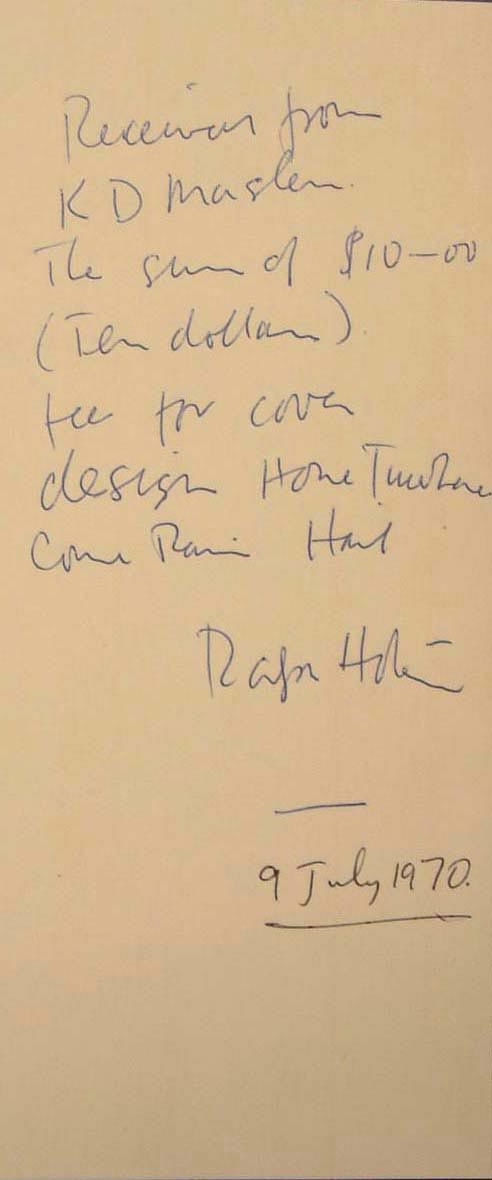 Received from
K D Maslen.
The sum of $10-00
(Ten dollars).
fee for cover
design Hone Tuwhare
Come Rain Hail
Ralph Hotere
9 July 1970.